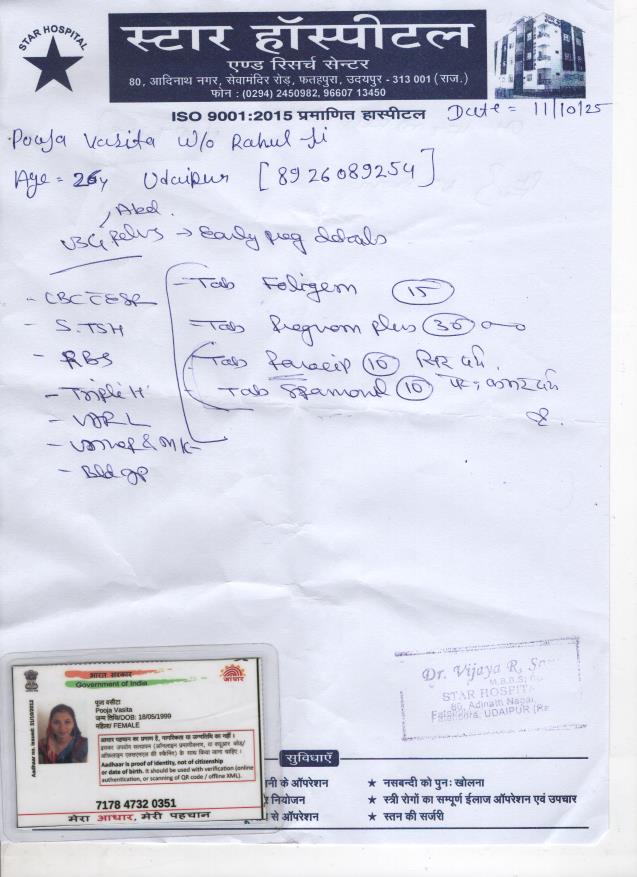 STAR HOSPITAL
स्टार हॉस्पीटल
एण्ड रिसर्च सेन्टर
80, आदिनाथ नगर, सेवामंदिर रोड़, फतहपुरा, उदयपुर - 313 001 (राज.)
फोन : (0294) 2450982, 96607 13450
ISO 9001:2015 प्रमाणित हास्पीटल
Date = 11/10/25
Pooja Vasita w/o Rahul Ji
Age = 26y Udaipur [8926089254]
Abd.
USG Pelvis → Early preg details
- CBC ESR
- S.TSH
- RBS
- Triple H
- Bld gp
- Tab Foligem 15
- Tab Pregnom plus 30
- Tab Paracip 10 सिर दर्द
- Tab Spamond 10 कमर दर्द
Dr. Vijaya R.
M.B.B.S;
STAR HOSPITA
80, Adinath Nagar,
Fatehpura, UDAIPUR (Ra
भारत सरकार
Government of India
आधार
Aadhaar no. issued: 31/10/2012
पूजा वसीटा
Pooja Vasita
जन्म तिथि/DOB: 18/05/1999
महिला/ FEMALE
आधार पहचान का प्रमाण है, नागरिकता या जन्मतिथि का नहीं।
इसका उपयोग सत्यापन (ऑनलाइन प्रमाणीकरण, या क्यूआर कोड/
ऑफ़लाइन एक्सएमएल की स्कैनिंग) के साथ किया जाना चाहिए।
Aadhaar is proof of identity, not of citizenship
or date of birth. It should be used with verification (online
authentication, or scanning of QR code / offline XML).
7178 4732 0351
मेरा आधार, मेरी पहचान
सुविधाएँ
नी के ऑपरेशन
★ नसबन्दी को पुनः खोलना
नियोजन
★ स्त्री रोगों का सम्पूर्ण ईलाज ऑपरेशन एवं उपचार
से ऑपरेशन
★ स्तन की सर्जरी